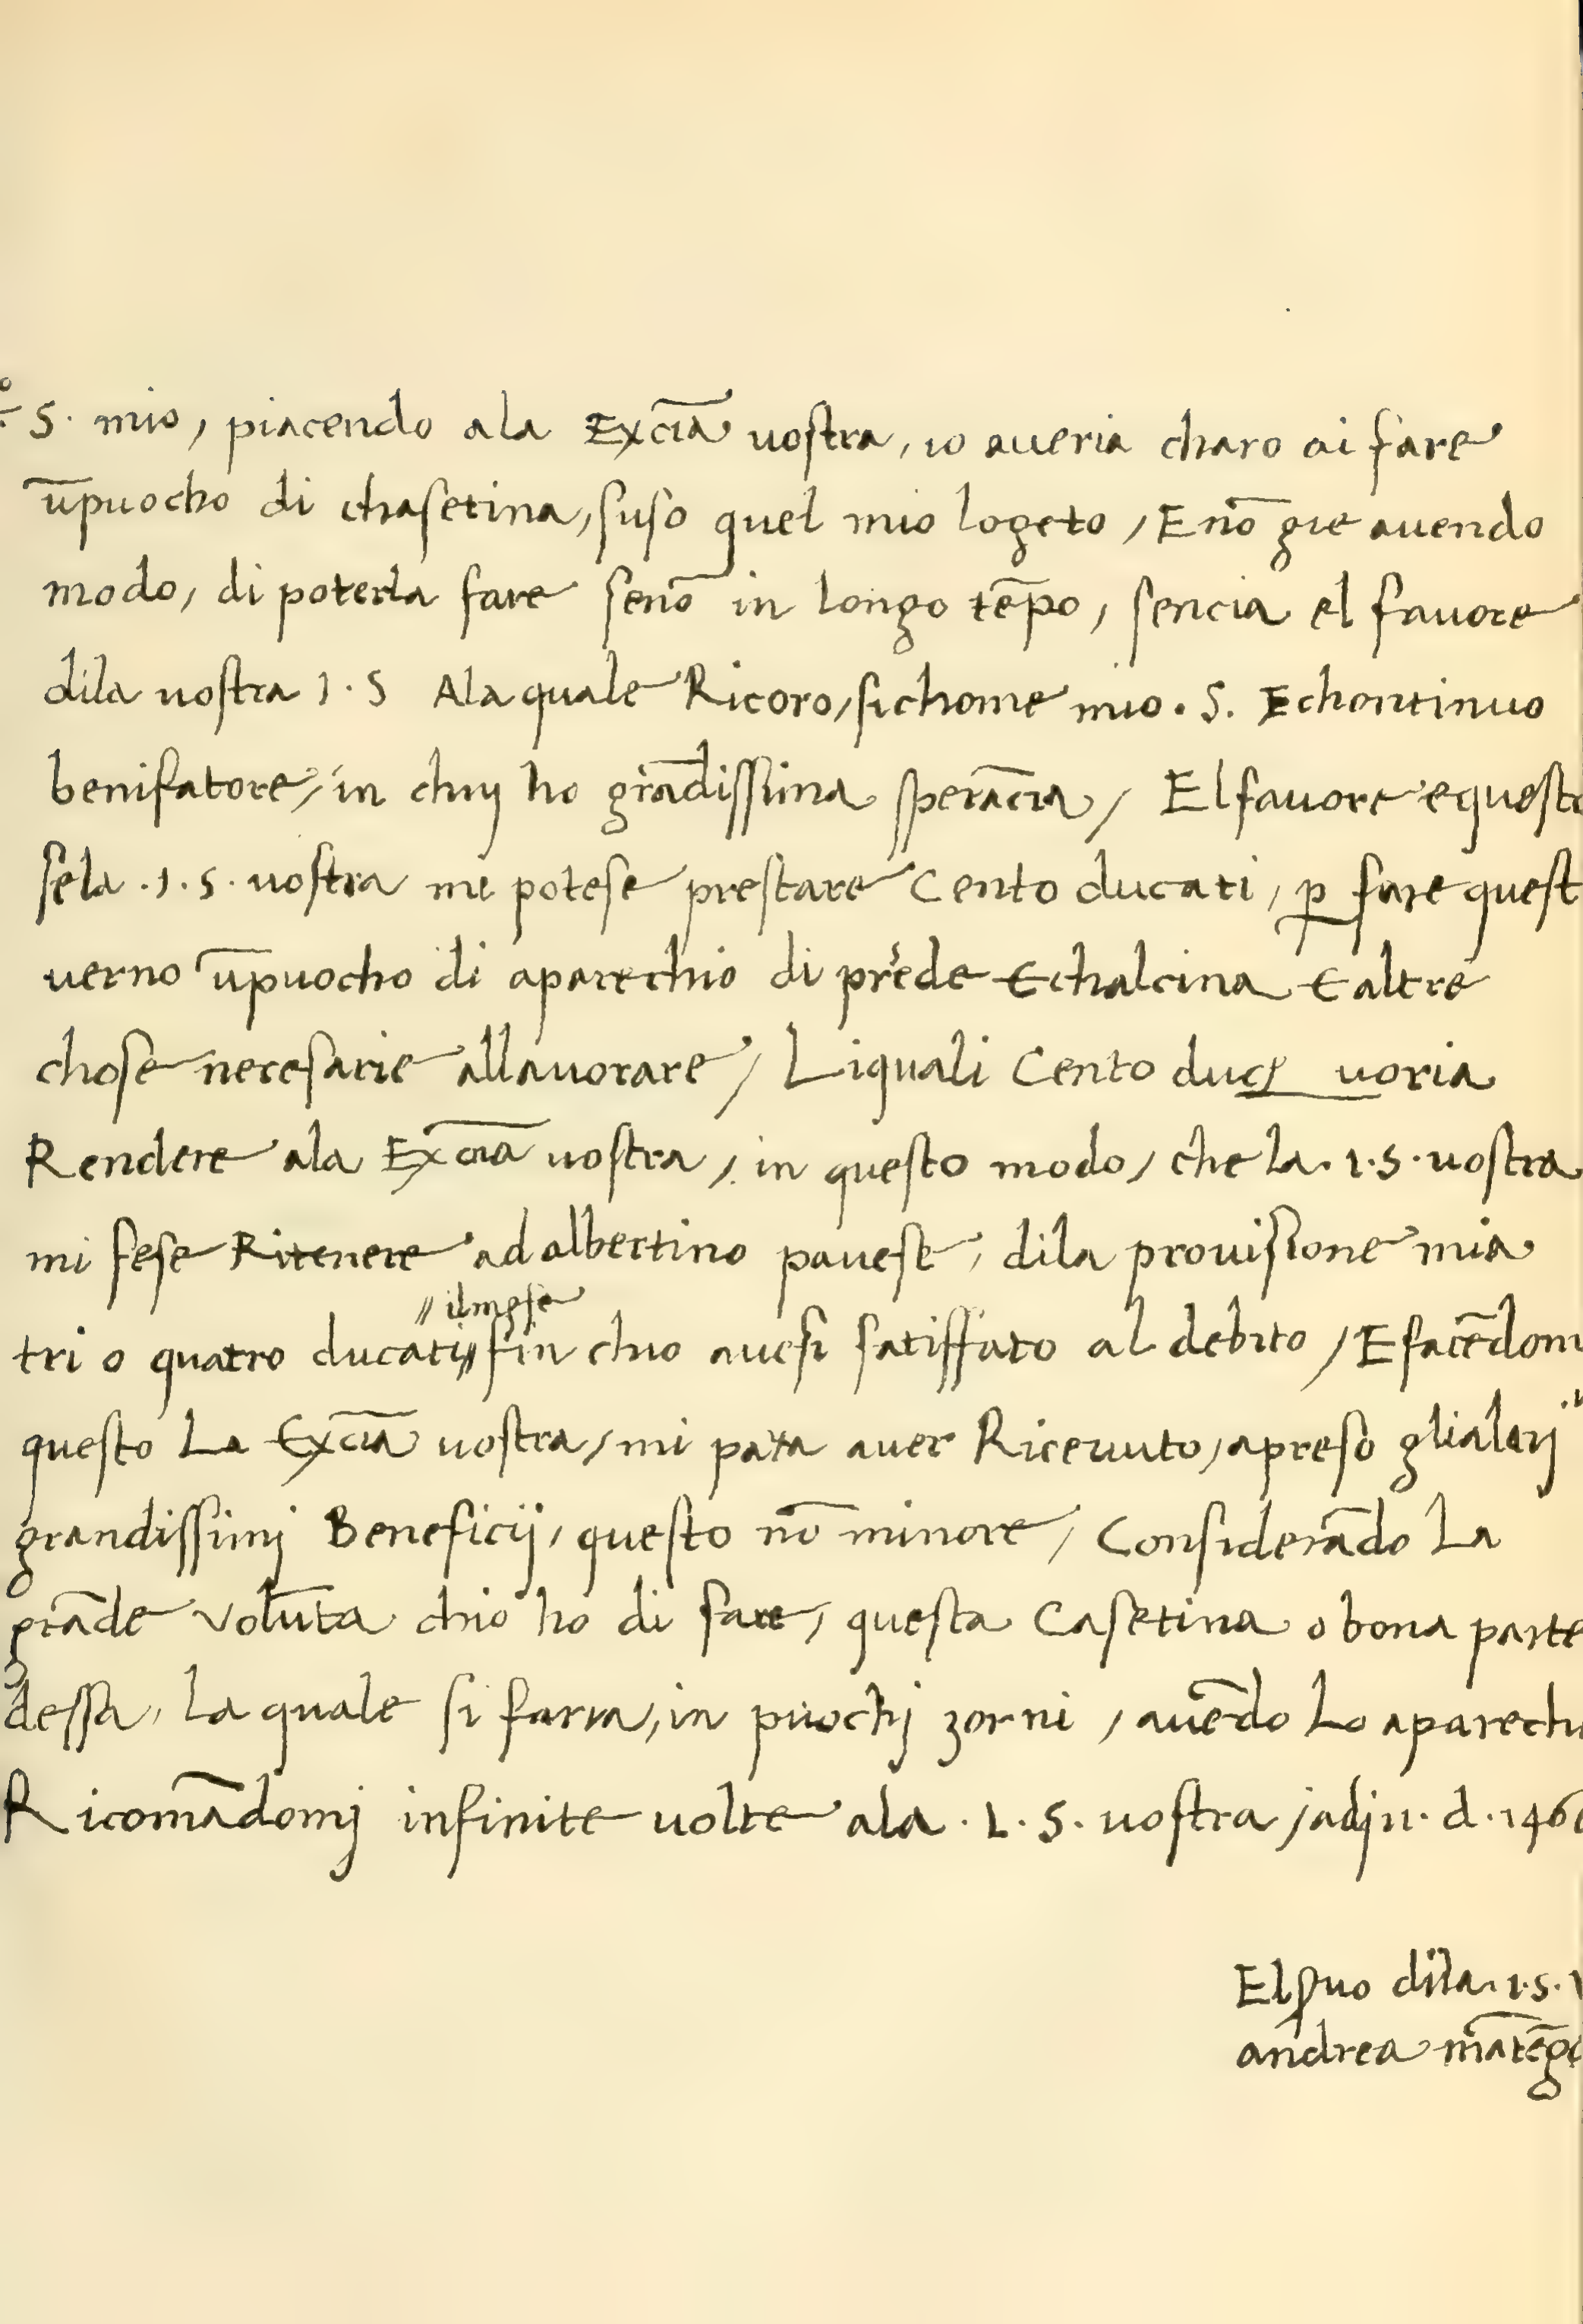 S. mio, piacendo ala Excīa vostra, io averia charo di fare
ūpuocho di chasetina, suso quel mio logeto, E nō gie avendo
modo, di poterla fare senō in longo tēpo, sencia el favore
dila vostra I. S Ala quale Ricoro, sichome mio. S. E chontinuo
benifatore, in chuy ho grādissima sperācia, El favore e questo
se la .I. S. vostra mi potese prestare Cento ducati, p fare quest
verno ūpuocho di aparechio di prede E chalcina E altre
chose necesarie allavorare, Li quali Cento duc voria
Rendere ala Excīa vostra, in questo modo, che La. I. S. vostra
mi fese Ritenere ad albertino pavese, dila provisione mia
// il mese
tri o quatro ducati// fin chio avesi satisffato al debito, E facēdom
questo La Excīa vostra, mi para aver Ricevuto, apreso gli altrj
grandissimj Beneficij, questo nō minore, Considerādo La
grāde volūta chio ho di fare, questa Casetina o bona parte
dessa, La quale si faria, in puochj zorni, avēdo Lo aparechi
Ricomādomj infinite volte ala. I. S. vostra, adj 11. d. 146
El suo dila. I. S.
andrea mātēg